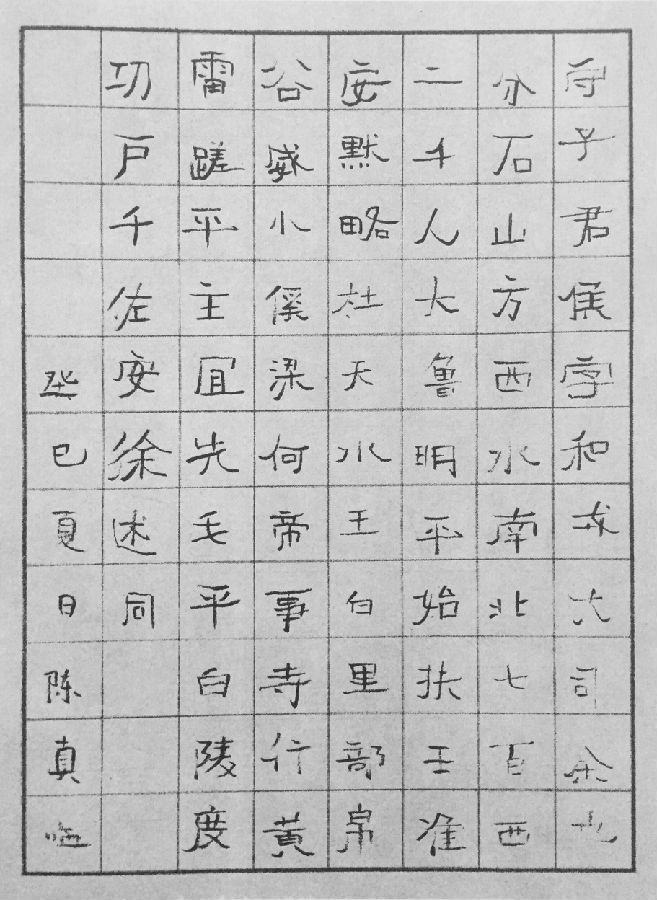 守子君侯字和戎六司余也
分石山方西水南北七百西
二千人大魯明平始扶王准
安默略杜天水王白里部帛
谷威小傒梁何帝事寺行黃
雷蹉平主宜先毛平白陵度
功户千佐安徐述同
癸巳夏日陈真临